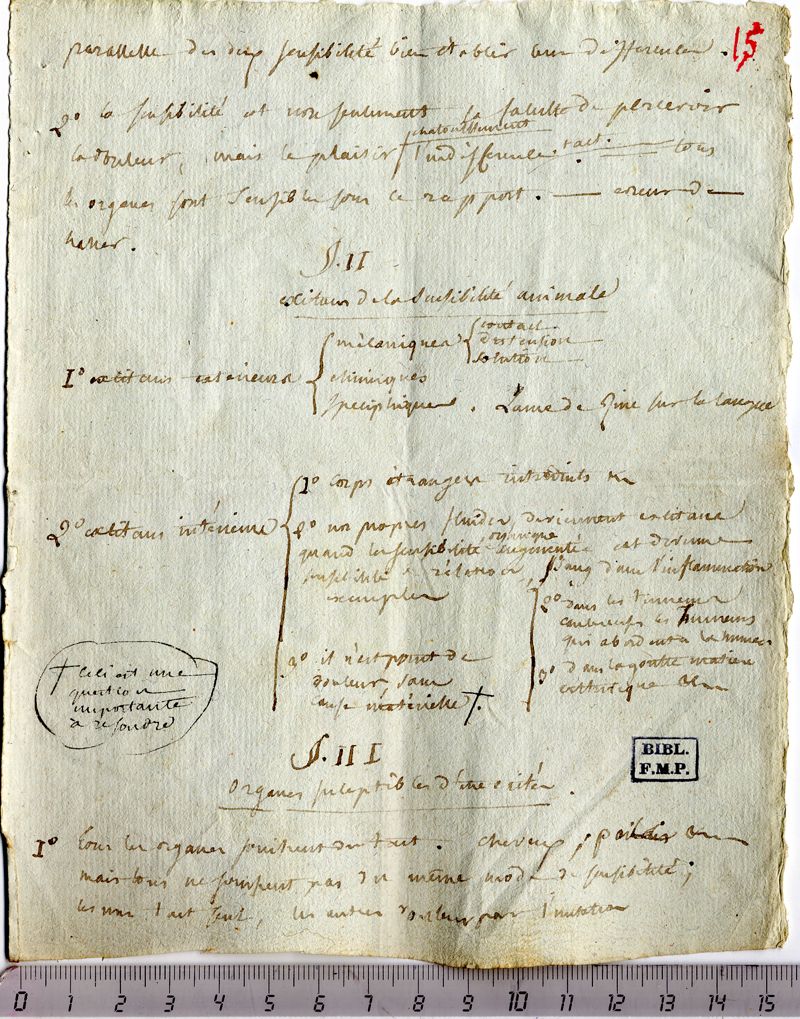 15
parallelle des deux sensibilité bien etablir leur difference.
2° la sensibilité est non seulement la faculté de percevoir
la douleur, mais le plaisir chatouillement
l'indifference. tact. — tous
les organes sont sensibles sous ce rapport. — erreur de
haller.
§. II
excitans de la sensibilité animale
1° excitans exterieurs
mécaniques
contact
distension
solution
chimiques
speciphiques. Lame de zinc sur la langue
2° excitans intérieurs
1° corps étrangers introduits
2° nos propres fluides deviennent excitans
quand la sensibilité organique augmentée est devenue
sensibilité de rélation
exemples
sang dans l'inflammation
2° dans les tumeurs
les humeurs
qui abordent a la tumeur
3° dans la goutte matiere
3° il n'est point de
douleur sans
cause matérielle †.
† Ceci est une
question
importante
a résoudre
§. III
BIBL.
F.M.P.
Organes suceptibles d'etre excités.
1° tous les organes jouissent du tact. cheveux,
mais tous ne jouissent pas du meme mode de sensibilité;
les uns tact seul, les autres douleur par l'irritation
0 1 2 3 4 5 6 7 8 9 10 11 12 13 14 15